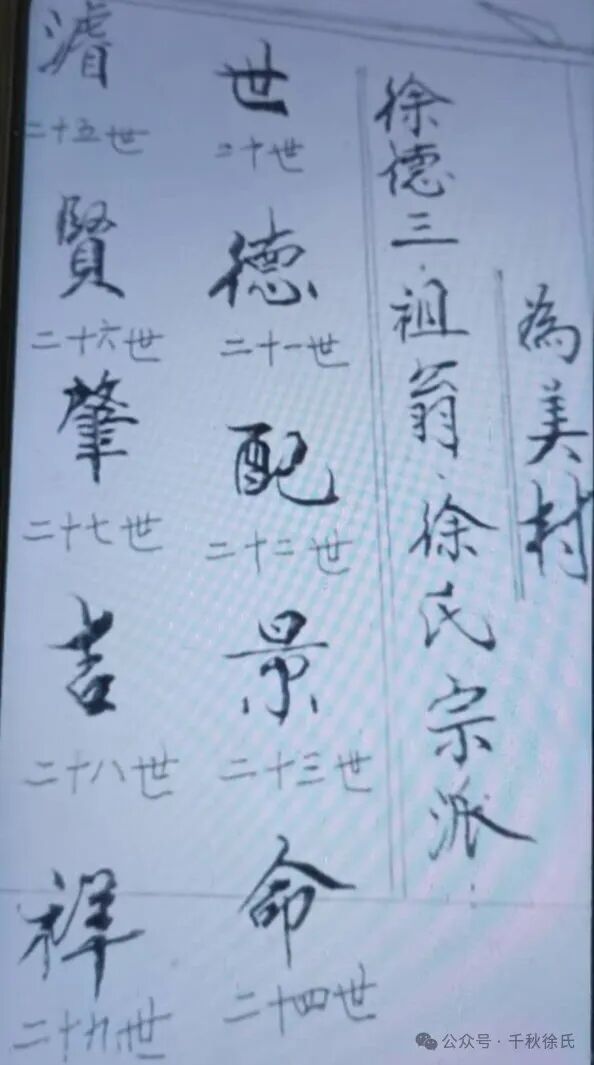 為美村
徐德三·祖翁·徐氏宗派
世
二十世
德
二十一世
配
二十二世
景
二十三世
命
二十四世
濬
二十五世
賢
二十六世
肇
二十七世
吉
二十八世
祥
二十九世
公众号·千秋徐氏